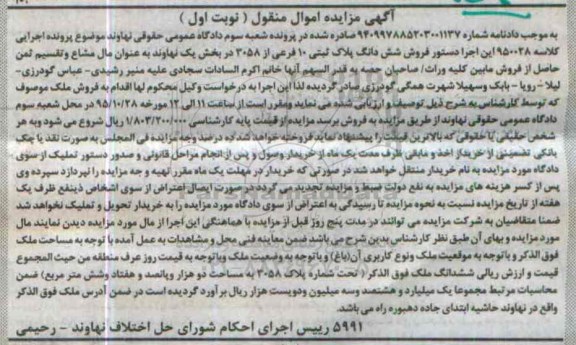 آگهی مزایده اموال منقول ( نوبت اول )
به موجب دادنامه شماره ۹۴۰۹۹۷۸۸۵۲۰۳۰۰۱۱۳۷ صادره در پرونده شعبه سوم دادگاه عمومی حقوقی نهاوند موضوع پرونده اجرایی
کلاسه ۹۵۰۰۲۸ این اجرا دستور فروش شش دانگ پلاک ثبتی ۱۰ فرعی از ۳۰۵۸ در بخش یک نهاوند به عنوان مال مشاع وتقسیم ثمن
حاصل از فروش مابین کلیه وراث/ صاحبان حصه به قدر السهم آنها خانم اکرم السادات سجادی علیه منیر رشیدی- عباس گودرزی-
لیلا - رویا - بابک وسهیلا شهرت همگی گودرزی صادر گردیده لذا این اجرا به درخواست وکیل محکوم لها اقدام به فروش ملک موصوف
که توسط کارشناس به شرح ذیل توصیف و ارزیابی شده می نماید ومقرر است از ساعت ۱۱ الی ۱۲ مورخه ۹۵/۱۰/۲۸ در محل شعبه سوم
دادگاه عمومی حقوقی نهاوند از طریق مزایده به فروش برسد مزایده از قیمت پایه کارشناسی ۱/۸۰۳/۲۰۰/۰۰۰ ریال شروع می شود وبه هر
شخص حقیقی یا حقوقی که بالاترین قیمت را پیشنهاد نماید فروخته خواهد شد ده درصد وجه مزایده فی المجلس به صورت نقد یا چک
بانکی تضمینی از خریدار اخذ و مابقی ظرف مدت یک ماه از خریدار وصول و پس از انجام مراحل قانونی و صدور دستور تملیک از سوی
دادگاه مورد مزایده به نام خریدار منتقل خواهد شد در صورتی که خریدار در مهلت یک ماه مقرر تهیه و جه مزایده را نپردازد سپرده وی
پس از کسر هزینه های مزایده به نفع دولت ضبط و مزایده تجدید می گردد در صورت ایصال اعتراض از سوی اشخاص ذینفع ظرف یک
هفته از تاریخ مزایده نسبت به نحوه مزایده تا رسیدگی به اعتراض از سوی دادگاه مورد مزایده را به خریدار تحویل و تملیک نخواهد شد
ضمنا متقاضیان به شرکت مزایده می توانند در مدت پنج روز قبل از مزایده با هماهنگی این اجرا از مال مورد مزایده دیدن نمایند مال
مورد مزایده و بهای آن طبق نظر کارشناس بدین شرح می باشد ضمن معاینه فنی محل و مشاهدات به عمل آمده با توجه به مساحت ملک
فوق الذکر و باتوجه به موقعیت ملک ونوع کاربری آن(باغ) وباتوجه به وضعیت ملک وباتوجه به قیمت روز عرف منطقه من حیث المجموع
قیمت و ارزش ریالی ششدانگ ملک فوق الذکر ( تحت شماره پلاک ۳۰۵۸ به مساحت دو هزار وپانصد و هفتاد وشش متر مربع) ضمن
محاسبات مرتبط مجموعا یک میلیارد و هشتصد وسه میلیون ودویست هزار ریال بر آورد گردیده است در ضمن آدرس ملک فوق الذکر
واقع در نهاوند حاشیه ابتدای جاده دهبوره راه می باشد.
۵۹۹۱ رییس اجرای احکام شورای حل اختلاف نهاوند - رحیمی